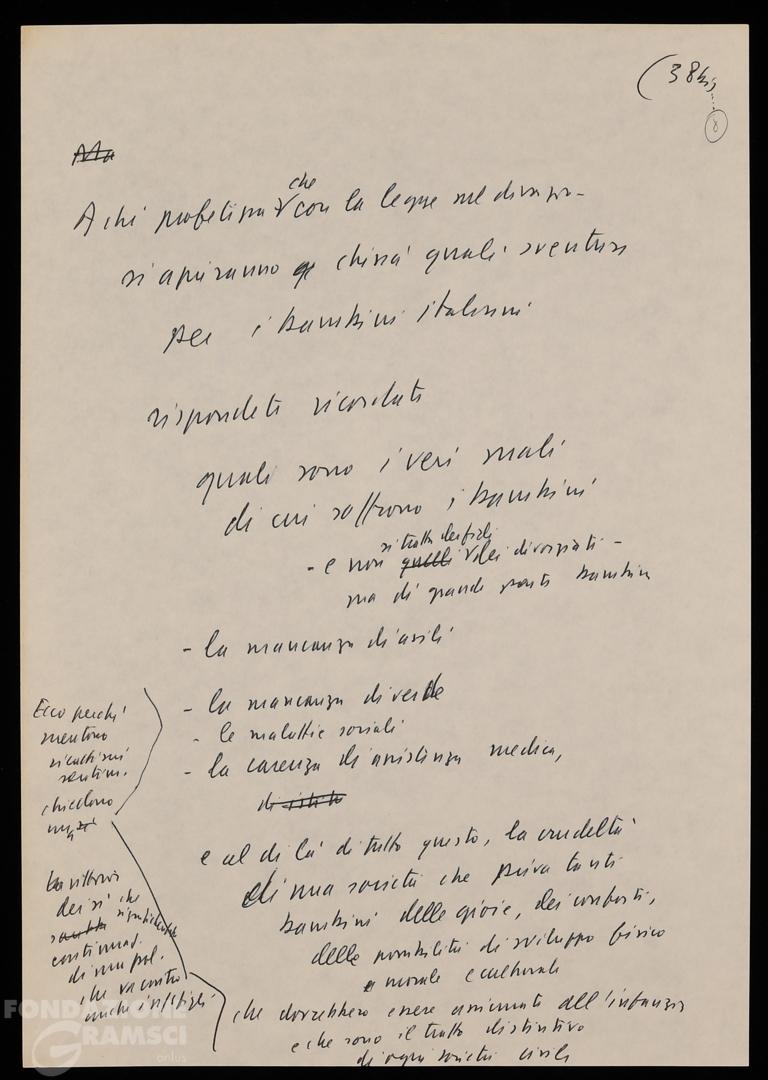 (38 bis
8
Ma
che
A chi profetizza con la legge sul divorzio
si apriranno chissà quali sventure
per i bambini italiani
rispondete ricordate
quali sono i veri mali
di cui soffrono i bambini
si tratta dei figli
- e non quelli dei divorziati -
ma di grande parte bambini
- la mancanza di asili
- la mancanza di verde
- le malattie sociali
- la carenza di assistenza medica,
e al di là di tutto questo, la crudeltà
di una società che priva tanti
bambini delle gioie, dei conforti,
delle possibilità di sviluppo fisico
e morale e culturale
che dovrebbero essere assicurati all'infanzia
e che sono il tratto distintivo
di ogni società civile
Ecco perché
mentono
chiedono
La vittoria
dei sì che
significherebbe
continuaz.
di una pol.
che va contro
anche i figli
FONDAZIONE
GRAMSCI
onlus